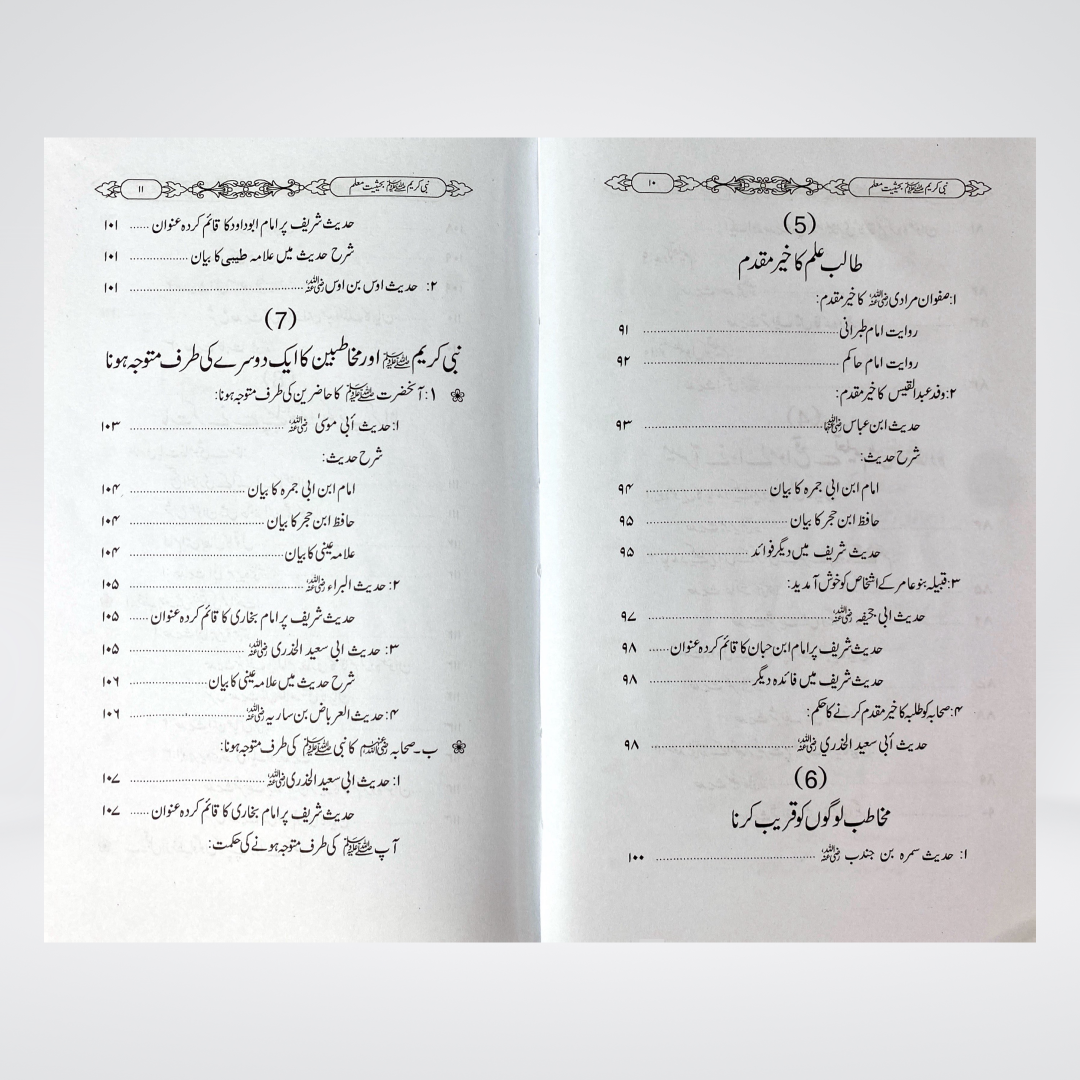 نبی کریم ﷺ بحیثیت معلم ۱۰
(5)
طالب علم کا خیر مقدم
۱: صفوان مرادی رضی اللہ عنہ کا خیر مقدم:
روایت امام طبرانی ........................................ ۹۱
روایت امام حاکم ........................................ ۹۲
۲: وفد عبدالقیس کا خیر مقدم:
حدیث ابن عباس رضی اللہ عنہما ........................................ ۹۳
شرح حدیث:
امام ابن ابی جمرہ کا بیان ........................................ ۹۴
حافظ ابن حجر کا بیان ........................................ ۹۵
حدیث شریف میں دیگر فوائد ........................................ ۹۵
۳: قبیلہ بنو عامر کے اشخاص کو خوش آمدید:
حدیث ابی جحیفہ رضی اللہ عنہ ........................................ ۹۷
حدیث شریف پر امام ابن حبان کا قائم کردہ عنوان ...... ۹۸
حدیث شریف میں فائدہ دیگر ........................................ ۹۸
۴: صحابہ کو طلبہ کا خیر مقدم کرنے کا حکم:
حدیث أبي سعيد الخدري رضی اللہ عنہ ........................................ ۹۸
(6)
مخاطب لوگوں کو قریب کرنا
۱: حدیث سمرہ بن جندب رضی اللہ عنہ ........................................ ۱۰۰
نبی کریم ﷺ بحیثیت معلم ۱۱
حدیث شریف پر امام ابوداود کا قائم کردہ عنوان ...... ۱۰۱
شرح حدیث میں علامہ طیبی کا بیان ................. ۱۰۱
۲: حدیث اوس بن اوس رضی اللہ عنہ ........................................ ۱۰۱
(7)
نبی کریم ﷺ اور مخاطبین کا ایک دوسرے کی طرف متوجہ ہونا
۱: آنحضرت ﷺ کا حاضرین کی طرف متوجہ ہونا:
۱: حدیث أبی موسیٰ رضی اللہ عنہ ........................................ ۱۰۳
شرح حدیث:
امام ابن ابی جمرہ کا بیان ........................................ ۱۰۴
حافظ ابن حجر کا بیان ........................................ ۱۰۴
علامہ عینی کا بیان ........................................ ۱۰۴
۲: حدیث البراء رضی اللہ عنہ ........................................ ۱۰۵
حدیث شریف پر امام بخاری کا قائم کردہ عنوان ...... ۱۰۵
۳: حدیث ابی سعید الخدری رضی اللہ عنہ ........................................ ۱۰۵
شرح حدیث میں علامہ عینی کا بیان ....................... ۱۰۶
۴: حدیث العرباض بن ساریہ رضی اللہ عنہ ........................................ ۱۰۶
ب۔ صحابہ رضی اللہ عنہم کا نبی ﷺ کی طرف متوجہ ہونا:
۱: حدیث ابی سعید الخدری رضی اللہ عنہ ........................................ ۱۰۷
حدیث شریف پر امام بخاری کا قائم کردہ عنوان ...... ۱۰۷
آپ ﷺ کی طرف متوجہ ہونے کی حکمت: